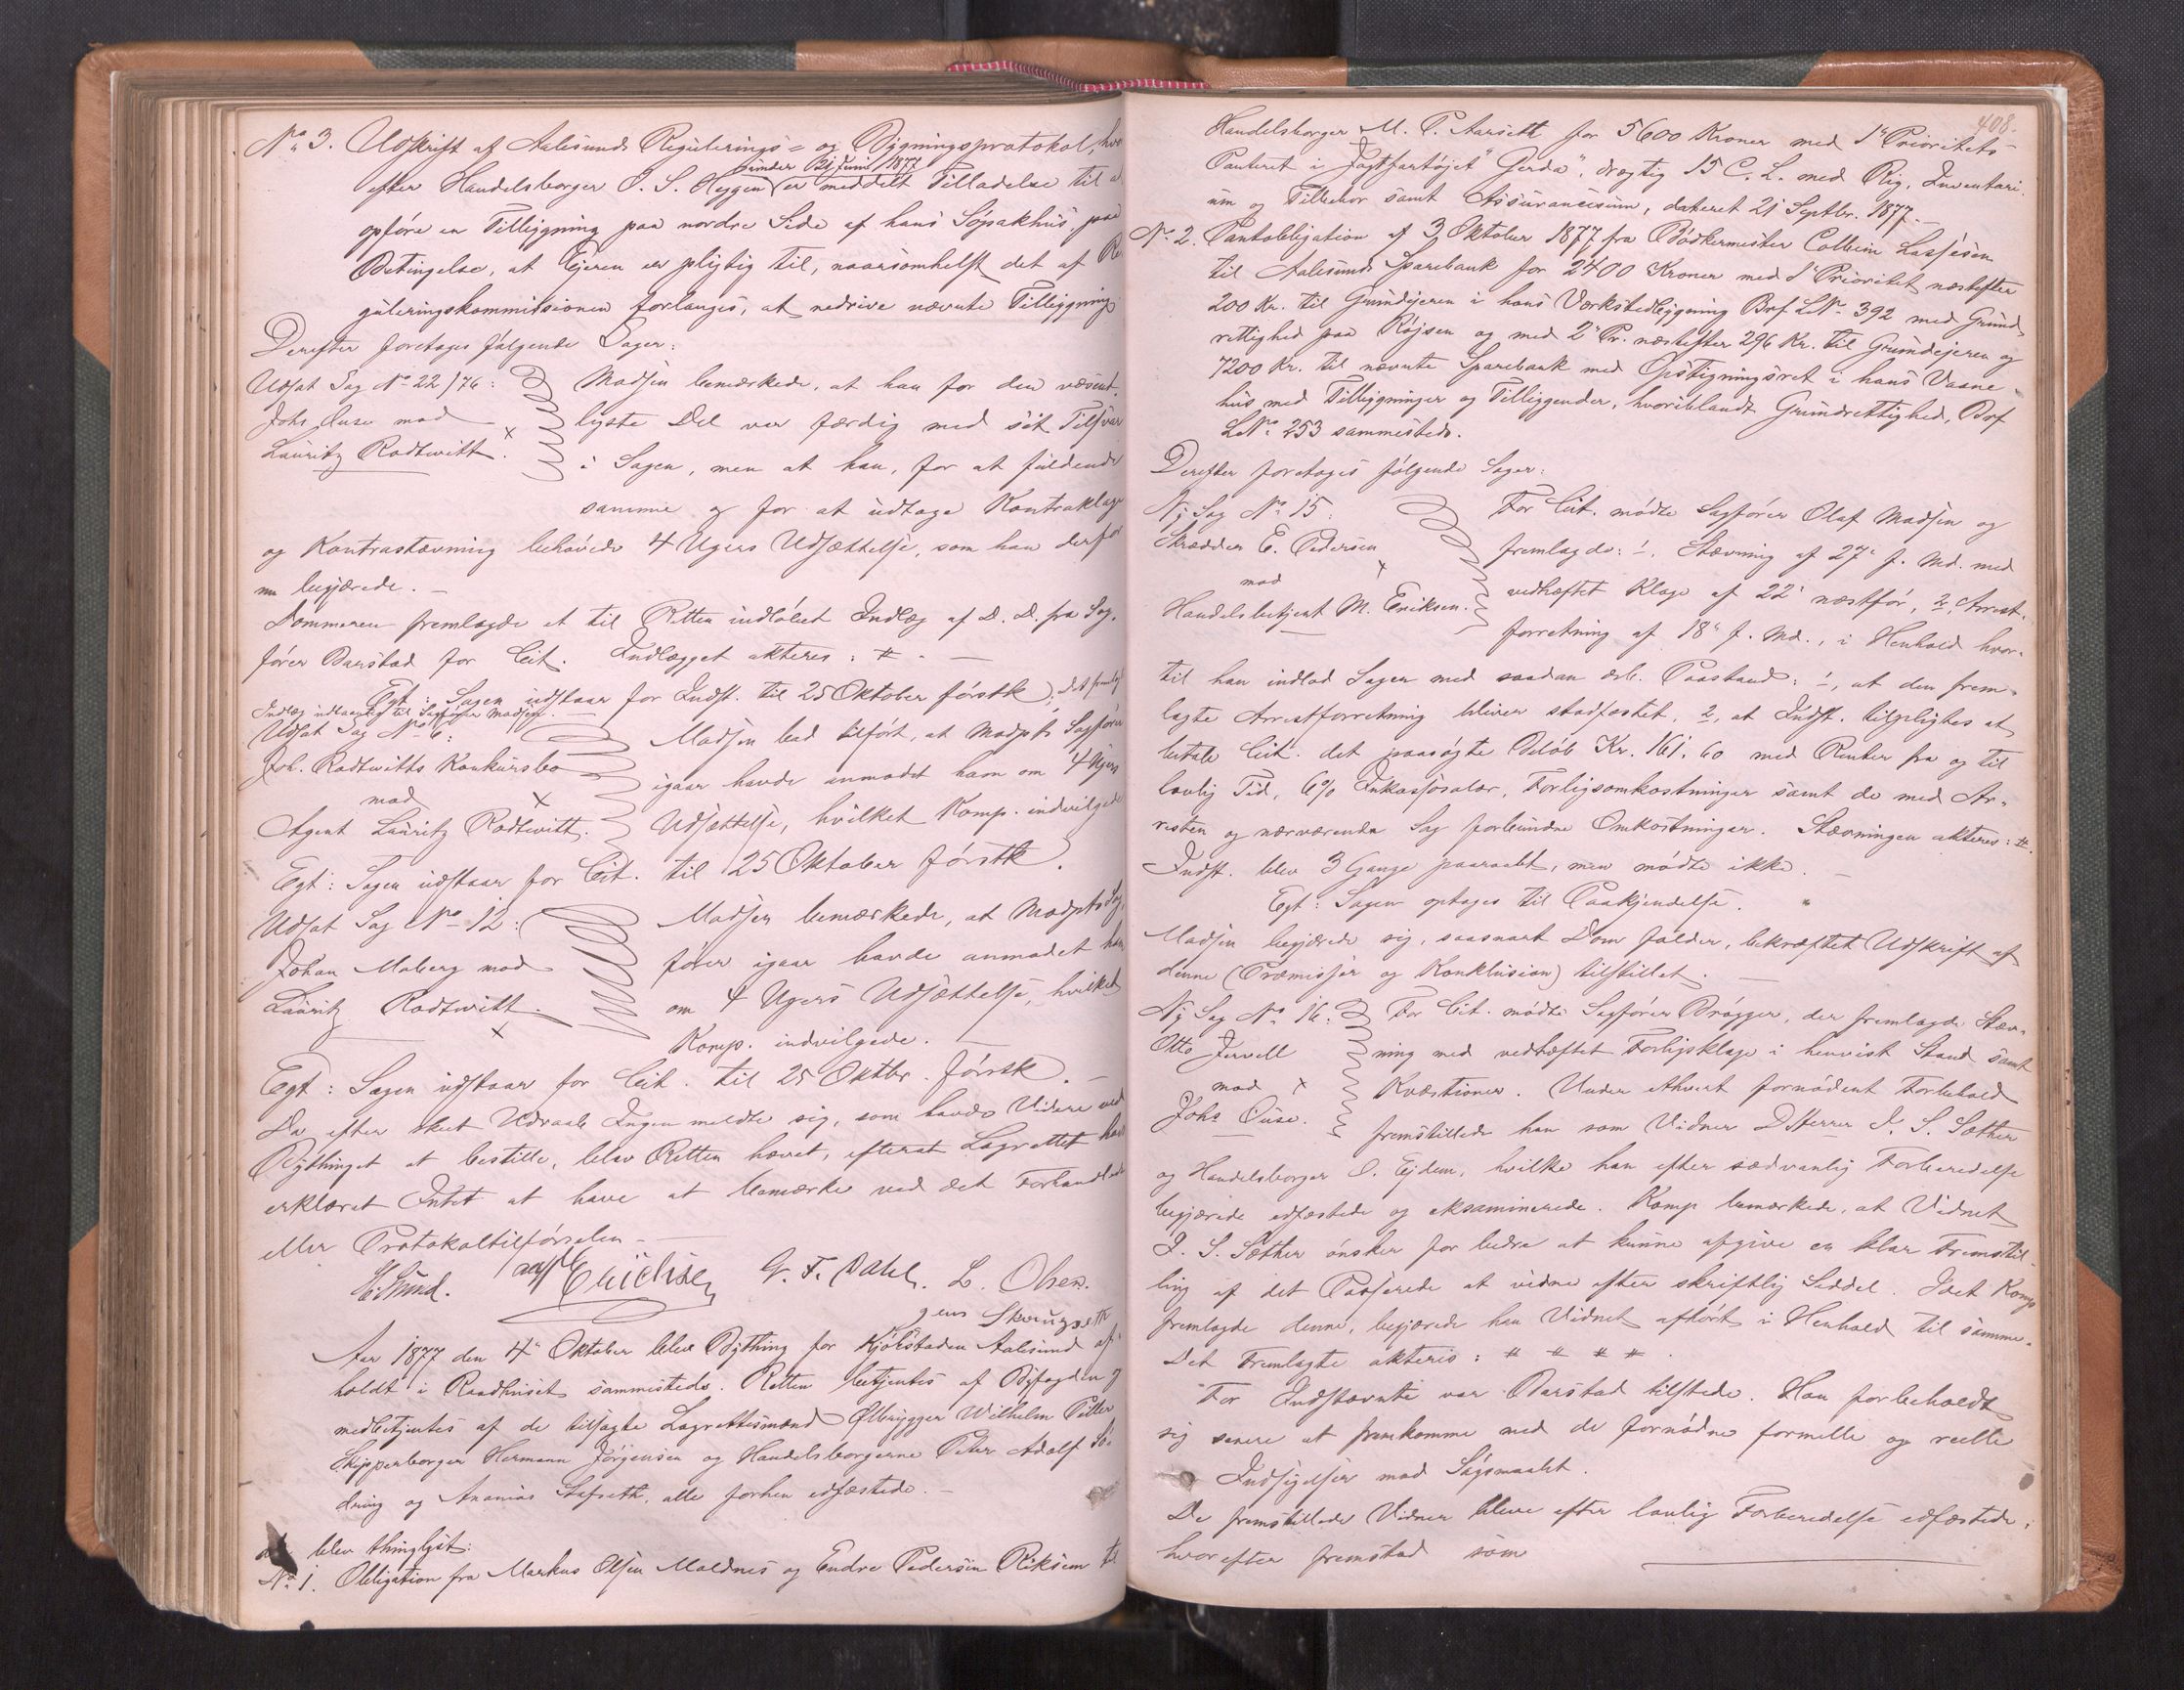 No 3. Udskrift af Aalesunds Regulerings- og Bygningsprotokol, hvor
under 21 Juni 1877
efter Handelsborger O. S. Heggen er meddelt Tilladelse til at
opføre en Tilbygning paa nordre Side af hans Søpakhus, paa
Betingelse, at Ejeren er pligtig til, naarsomhelst det af Re
guleringskommissionen forlanges, at nedrive nævnte Tilbygning
Derefter foretages følgende Sager:
Udsat Sag No 22/76:
Johs Ouse mod
Lauritz Rodtwitt.
Madsen bemærkede, at han for den væsent
ligste Del var færdig med sit Tilsvar
i Sagen, men at han, for at fuldende
samme og for at udtage Kontraklage
og Kontrastævning behøvede 4 Ugers Udsættelse, som han derfor
nu begjærede.
Dommeren fremlagde et til Retten indløbet Indlæg af D. D. fra Sag-
fører Barstad for Cit. Indlægget akteres: #.
Egt: Sagen udstaar for Indst. til 25 Oktober førstk, det fremlagte
Indlæg udlaanlig til Sagfører Madsen.
Udsat Sag No 6:
Joh. Rodtwitts Konkursbo
mod
Agent Lauritz Rodtwitt.
Madsen bad tilført, at Modpts Sagfører
igaar havde anmodet ham om 4 Ugers
Udsættelse, hvilket Komp. indvilgede
Egt: Sagen udstaar for Cit. til 25 Oktober førstk.
Udsat Sag No 12:
Johan Moberg mod
Lauritz Rodtwitt.
Madsen bemærkede, at Modpts Sag-
fører igaar havde anmodet ham
om 4 Ugers Udsættelse, hvilket
Komp. indvilgede.
Egt: Sagen udstaar for Cit. til 25 Oktbr. førstk.
Da efter skeet Udraab Ingen meldte sig, som havde Videre ved
Bythinget at bestille, blev Retten hævet, efterat Lagrettet havde
erklæret Intet at have at bemærke ved det Forhandlede
eller Protokoltilførselen.
G. F. Dahl. L. Olsen.
Aar 1877 den 4de Oktober blev Bything for Kjøbstaden Aalesund af-
holdt i Raadhuset sammesteds. Retten betjentes af Byfogden og
medbetjentes af de tilsagte Lagrettesmænd Ølbrygger Wilhelm Petter
Skipperborger Hermann Jørgensen og Handelsborgerne Peter Adolf Sø-
dring og Ananias Aafseth, alle forhen edfæstede.
blev thinglyst:
No 1. Obligation fra Markus Olsen Moldnes og Endre Pedersen Riksem til
408.
Handelsborger M. P. Aarseth for 5600 Kroner med 1ste Prioritets
Panteret i Jagtfartøjet "Gerda", drægtig 15 C. L. med Rig, Inventari-
um og Tilbehør samt Assurancesum, dateret 21 Septbr. 1877.
No 2. Pantobligation af 3 Oktober 1877 fra Bødkermester Colbein Lassesen
til Aalesunds Sparebank for 2400 Kroner med 1ste Prioritet næstefter
200 Kr. til Grundejeren i hans Værkstedbygning Brf. LNo 392 med Grund-
rettighed paa Røjsen og med 2den Pr. næstefter 296 Kr. til Grundejeren og
7200 Kr. til nævnte Sparebank med Opstigningsret i hans Vaane-
hus med Tilbygninger og Tilliggender, hvoriblandt Grundrettighed, Brf
LNo 253 sammesteds.
Derefter foretages følgende Sager:
Ny Sag No 15:
Skrædder E. Pedersen
mod
Handelsbetjent M. Eriksen.
For Cit. mødte Sagfører Olaf Madsen og
fremlagde: 1. Stævning af 27de f. Md. med
vedhæftet Klage af 22de næstfør, 2, Arrest-
forretning af 18de f. Md., i Henhold hvor-
til han indlod Sagen med saadan ærb. Paastand: 1, at den frem-
lagte Arrestforretning bliver stadfæstet, 2, at Indst. tilpligtes at
betale Cit. det paasøgte Beløb Kr. 161.60 med Renter fra og til
lovlig Tid, 6% Inkassosalær, Forligsomkostninger samt de med Ar-
resten og nærværende Sag forbundne Omkostninger. Stævningen akteres: #.
Indst. blev 3 Gange paaraabt, men mødte ikke.
Egt: Sagen optages til Paakjendelse.
Madsen begjærede sig, saasnart Dom falder, bekræftet Udskrift af
denne (Præmisser og Konklusion) tilstillet.
Ny Sag No 16:
Otto Jervell
mod
Johs Ouse.
For Cit. mødte Sagfører Brøgger, der fremlagde Stæv-
ning med vedhæftet Forligsklage i henvist Stand samt
Kvæstioner. Under ethvert fornødent Forbehold
fremstillede han som Vidner DHerrer I. S. Sæther
og Handelsborger O. Ejdem, hvilke han efter sædvanlig Forberedelse
begjærede edfæstede og eksaminerede. Komp bemærkede, at Vidnet
I. S. Sæther ønsker for bedre at kunne afgive en klar Fremstil-
ling af det Passerede at vidne efter skriftlig Seddel. Idet Komp
fremlagde denne, begjærede han Vidnet afhørt i Henhold til samme.
Det Fremlagte akteres: # # # #.
For Indstævnte var Barstad tilstede. Han forbeholdt
sig senere at fremkomme med de fornødne formelle og reelle
Indsigelser mod Søgsmaalet.
De fremstillede Vidner bleve efter lovlig Forberedelse edfæstede,
hvorefter fremstod som